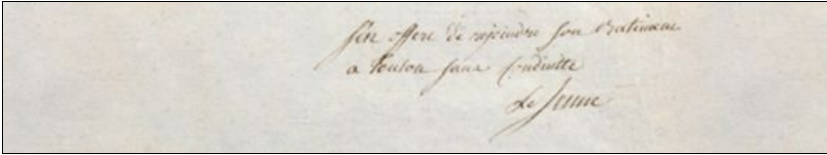 s'en offere de rejoindre son Batimeau
a Toulon sans Conduitte
Le Jeune